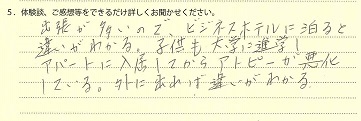 5. 体験談、ご感想等をできるだけ詳しくお聞かせください。
出張が多いので、ビジネスホテルに泊ると
違いがわかる。子供も大学に進学!
アパートに入居してからアトピーが悪化
している。外に出れば違いがわかる